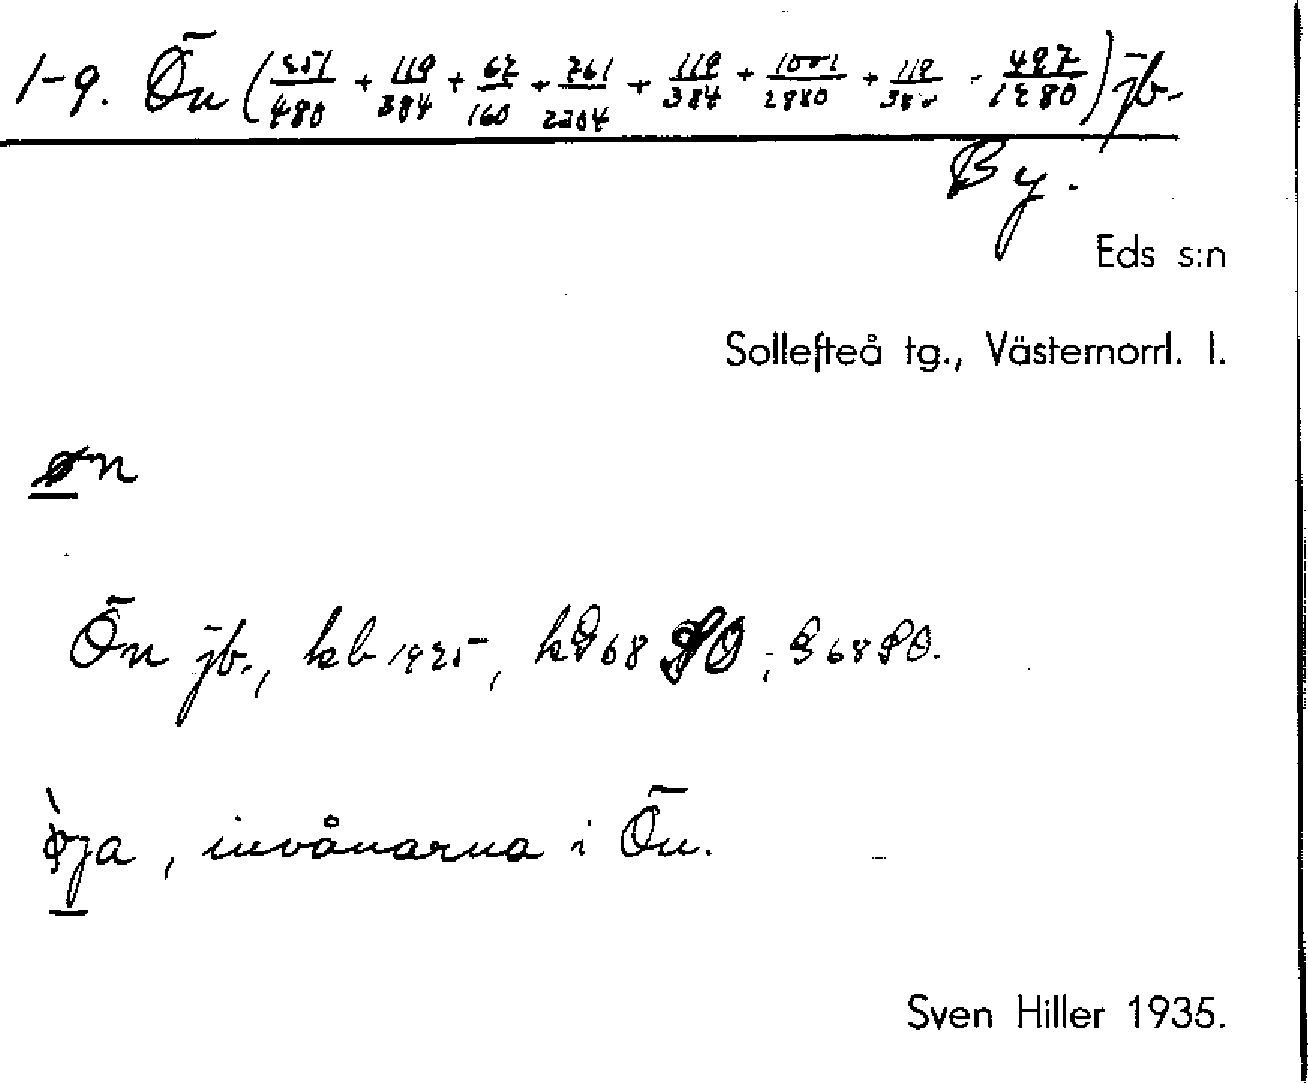 1-9. Ön (551/480 + 119/384 + 67/160 + 761/2304 + 119/384 + 1001/2880 + 119/384 - 497/1280) jb.
By.
Eds s:n
Sollefteå tg., Västernorrl. l.
øn
Ön jb., kb 1925, k 968 SO; G 68 SO.
ø̀ja, invånarna i Ön.
Sven Hiller 1935.